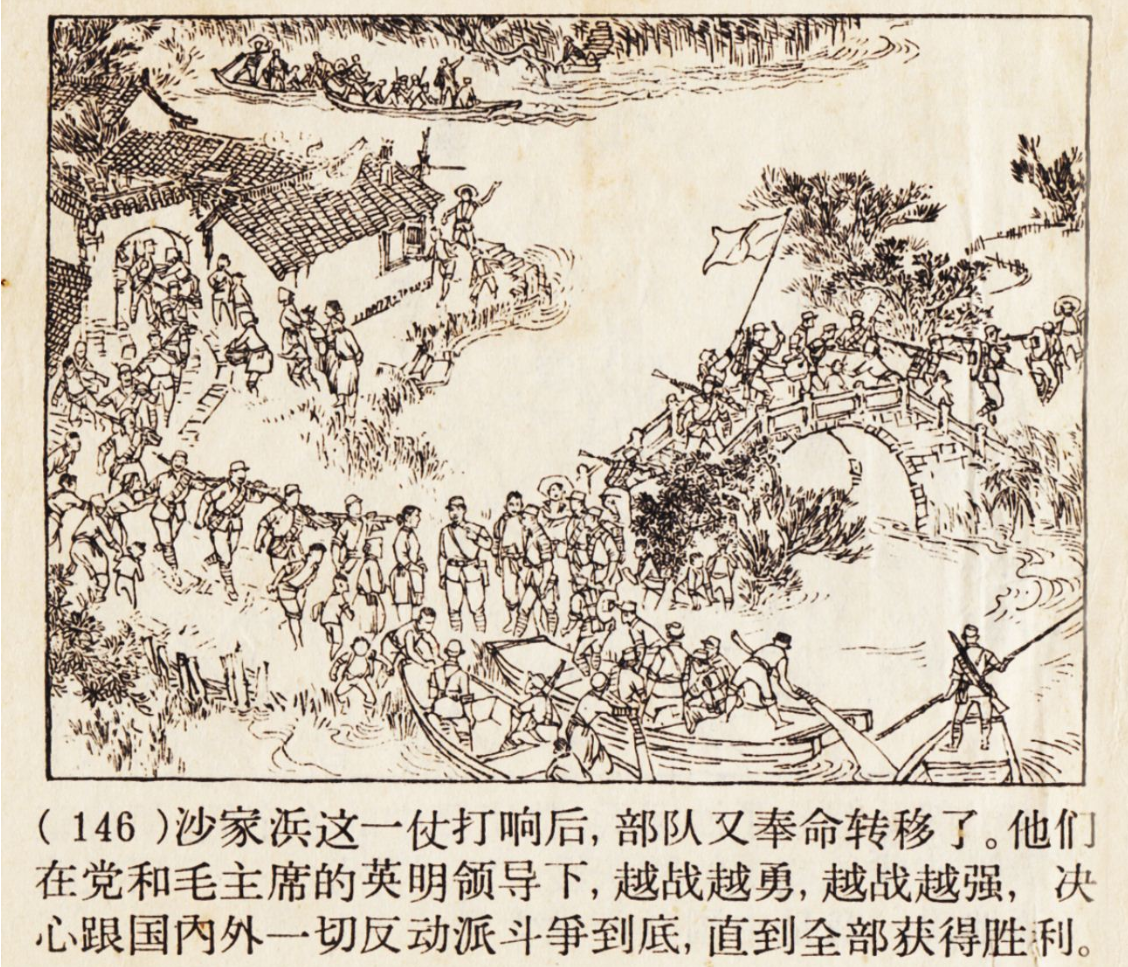 (146)沙家浜这一仗打响后,部队又奉命转移了。他们
在党和毛主席的英明领导下,越战越勇,越战越强, 决
心跟国內外一切反动派斗爭到底,直到全部获得胜利。